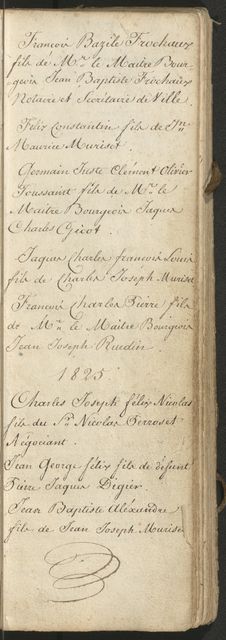 François Bazile Frochaux
fils de Mr. le Maitre Bour-
geois Jean Baptiste Frochaux
Notaire et Secrétaire de Ville.
Felix Constantin fils de
Maurice Murisot.
Germain Juste Clément Olivier
Toussaint fils de Mr. le
Maitre Bourgeois Jaques
Charles Gicot.
Jaques Charles françois Louis
fils de Charles Joseph Muriset
François Charles Pierre fils
de Mr. le Maître Bourgeois
Jean Joseph Ruedin
1825
Charles Joseph félix Nicolas
fils du Sr. Nicolas Perroset
Négociant.
Jean George félix fils de défunt
Pierre Jaques Digier.
Jean Baptiste Aléxandre
fils de Jean Joseph Muriset